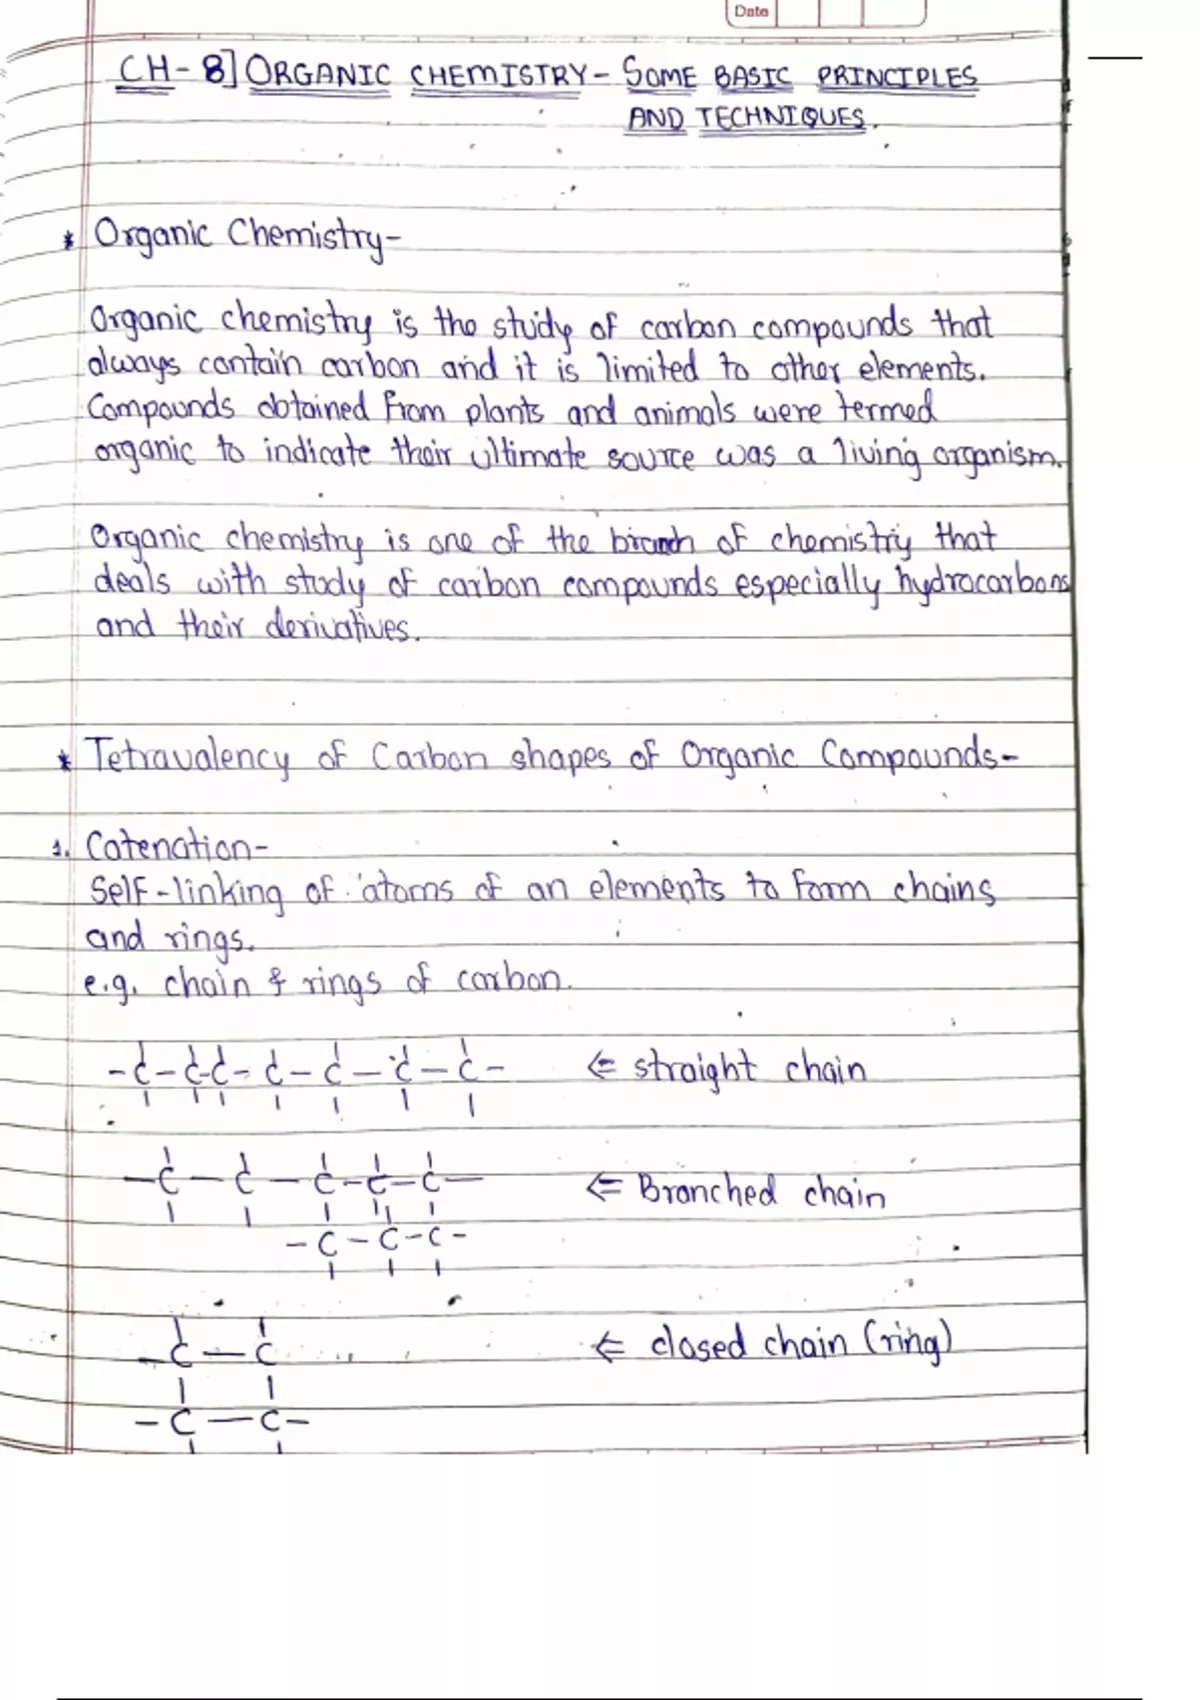 Date
CH-8] ORGANIC CHEMISTRY- SOME BASIC PRINCIPLES
AND TECHNIQUES.
* Organic Chemistry-
Organic chemistry is the study of carbon compounds that
always contain carbon and it is limited to other elements.
Compounds obtained from plants and animals were termed
organic to indicate their ultimate source was a living organism.
Organic chemistry is one of the branch of chemistry that
deals with study of carbon compounds especially hydrocarbons
and their derivatives.
* Tetravalency of Carbon shapes of Organic Compounds-
1. Catenation-
Self-linking of atoms of an elements to form chains
and rings.
e.g. chain & rings of carbon.
-C-C-C-C-C-C-C- ⇐ straight chain
-C-C-C-C-C- ⇐ Branched chain
-C-C-C-
-C-C ⇐ closed chain (ring)
-C-C-